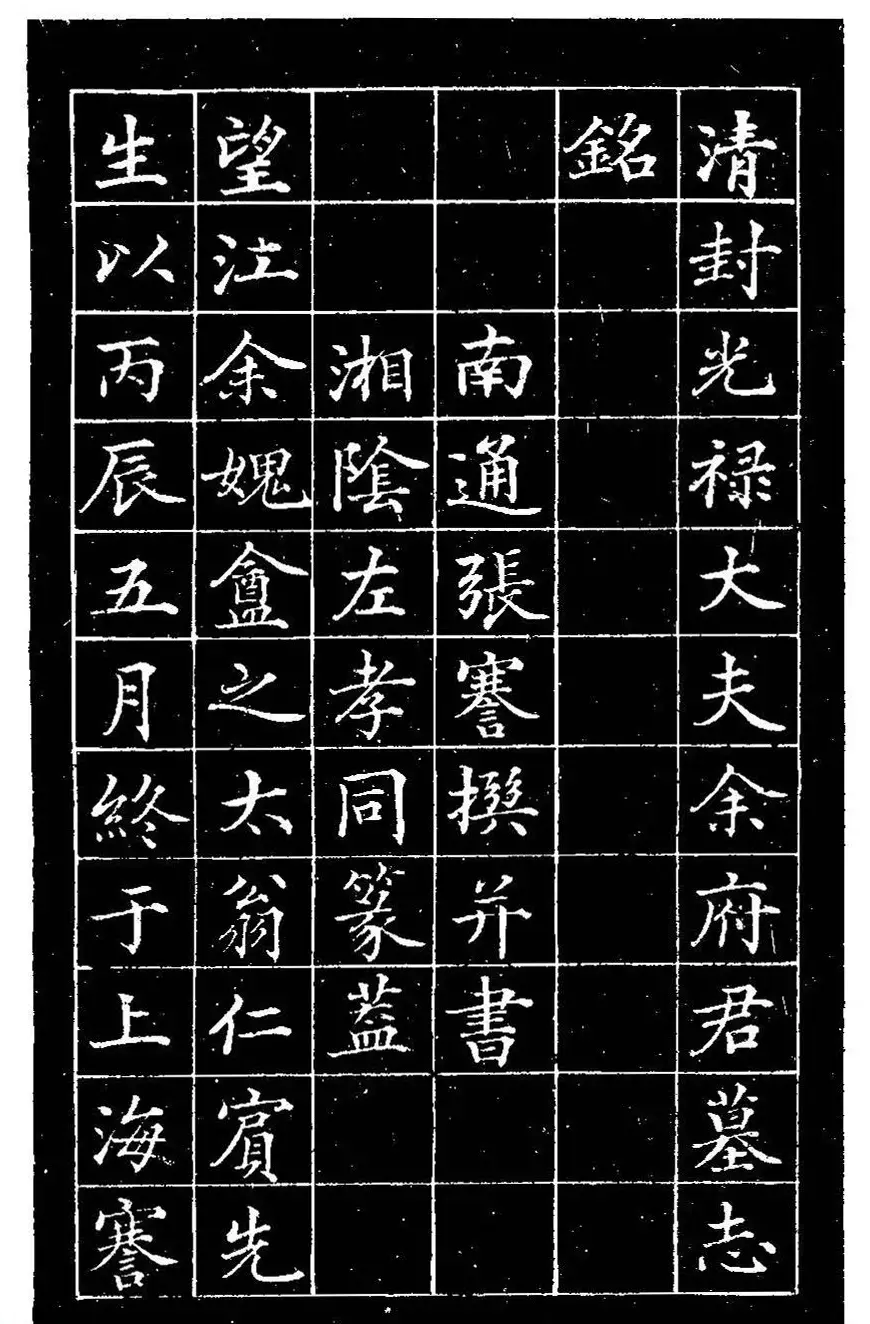 清封光祿大夫余府君墓志
銘
南通張謇撰并書
湘陰左孝同篆蓋
望江余媿盦之太翁仁賔先
生以丙辰五月終于上海謇